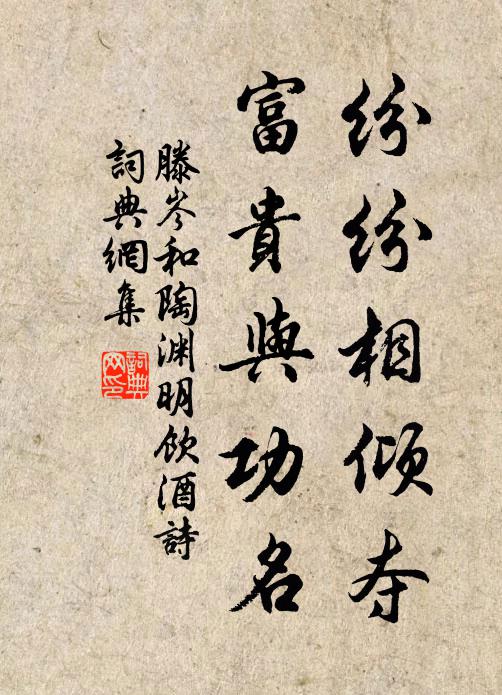 纷纷相倾夺
富貴與功名
滕岑和陶渊明飲酒詩
詞典網集
詞典网印